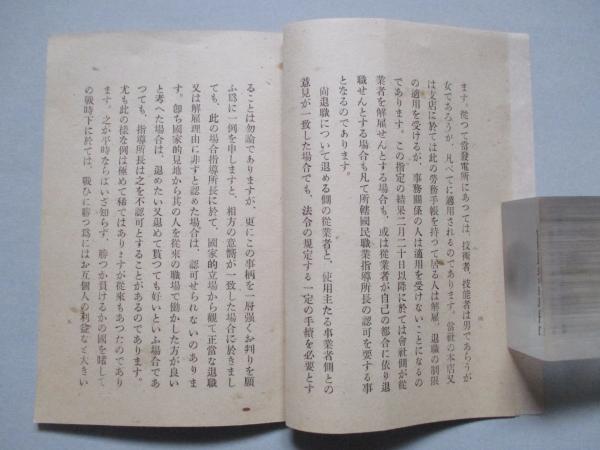 ます。從つて當發電所にあつては、技術者、技能者は男であらうが
女であらうが、凡べてに適用されるのであります。當社の本店又
は支店に於ては此の勞務手帳を持つて居る人は解雇、退職の制限
の適用を受けるが、事務關係の人は適用を受けないことになるの
であります。この指定の結果二月二十日以降に於ては會社側が從
業者を解雇せんとする場合も、或は從業者が自己の都合に依り退
職せんとする場合も凡て所轄國民職業指導所長の認可を要する事
となるのであります。
尙退職について退める側の從業者と、使用主たる事業者側との
意見が一致した場合でも、法令の規定する一定の手續を必要とす
ることは勿論でありますが、更にこの事柄を一層强くお判りを願
ふ爲に一例を申しますと、相方の意嚮が一致した場合に於きまし
ても、此の場合指導所長に於て、國家的立場から觀て正當な退職
又は解雇理由に非ずと認めた場合は、認可せられないのでありま
す。卽ち國家的見地から其の人を從來の職場で働かした方が良い
と考へた場合は、退めたい又退めて貰つても好いといふ場合であ
つても、指導所長は之を不認可とすることがあるのであります。
尤も此の樣な例は極めて稀ではありますが從來もあつたのであり
ます。之が平時ならばいざ知らず、勝つか負けるかの國を賭して
の戰時下に於ては、戰ひに勝つ爲にはお互個人の利益など大きい